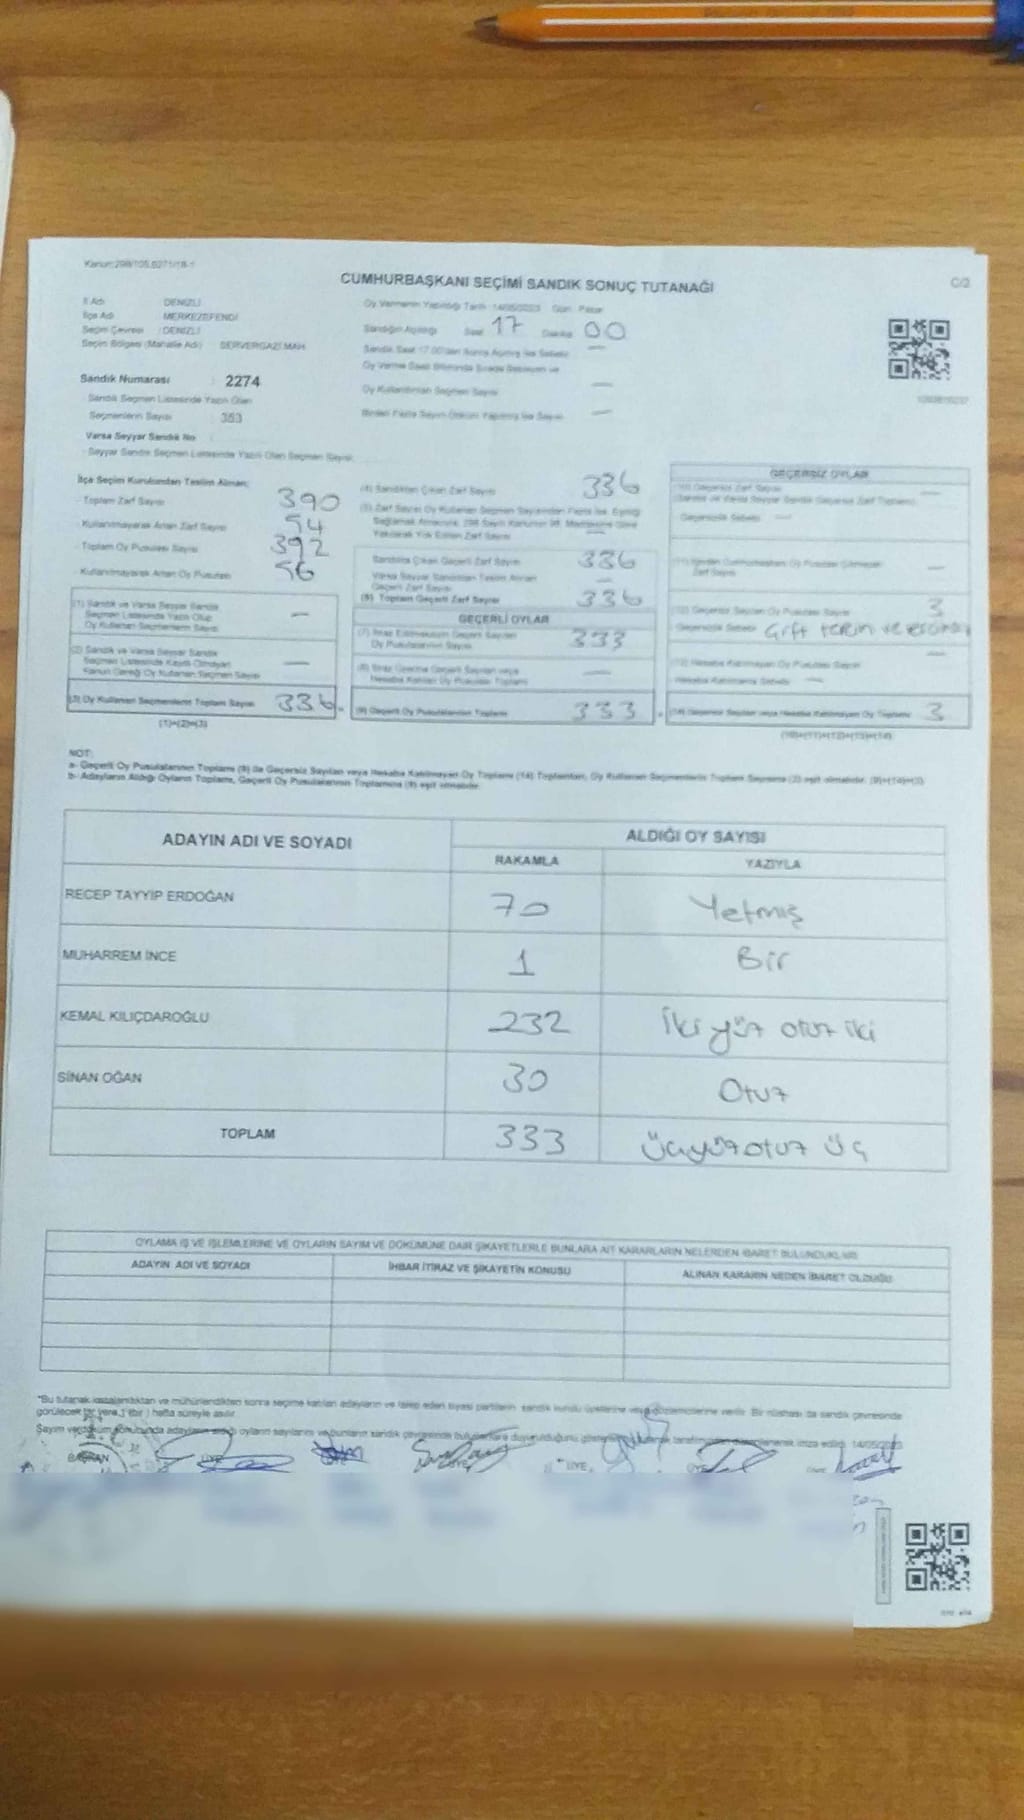 Kanun:298/105,6271/18-1
CUMHURBAŞKANI SEÇİMİ SANDIK SONUÇ TUTANAĞI
C/2
İl Adı : DENİZLİ
İlçe Adı : MERKEZEFENDİ
Seçim Çevresi : DENİZLİ
Seçim Bölgesi (Mahalle Adı) : SERVERGAZİ MAH.
Oy Vermenin Yapıldığı Tarih : 14/05/2023 Gün : Pazar
Sandığın Açıldığı Saat 17 Dakika 00
Sandık Saat 17.00'den Sonra Açılmış İse Sebebi —
Oy Kullandırılan Seçmen Sayısı —
Birden Fazla Sayım Döküm Yapılmış İse Sayısı —
Sandık Numarası : 2274
Sandık Seçmen Listesinde Yazılı Olan
Seçmenlerin Sayısı : 353
Varsa Seyyar Sandık No :
Seyyar Sandık Seçmen Listesinde Yazılı Olan Seçmen Sayısı:
İlçe Seçim Kurulundan Teslim Alınan;
- Toplam Zarf Sayısı 390
- Kullanılmayarak Artan Zarf Sayısı 54
- Toplam Oy Pusulası Sayısı 392
- Kullanılmayarak Artan Oy Pusulası 56
(1) Sandık ve Varsa Seyyar Sandık
Seçmen Listesinde Yazılı Olup
Oy Kullanan Seçmenlerin Sayısı —
(2) Sandık ve Varsa Seyyar Sandık
Seçmen Listesinde Kayıtlı Olmayan
Kanun Gereği Oy Kullanan Seçmen Sayısı —
(3) Oy Kullanan Seçmenlerin Toplam Sayısı 336
(1)+(2)=(3)
(4) Sandıktan Çıkan Zarf Sayısı 336
Sandıkta Çıkan Geçerli Zarf Sayısı 336
Varsa Seyyar Sandıktan Teslim Alınan
Geçerli Zarf Sayısı —
(6) Toplam Geçerli Zarf Sayısı 336
GEÇERLİ OYLAR
(7) İtiraz Edilmeksizin Geçerli Sayılan
Oy Pusulalarının Sayısı 333
(8) İtiraz Üzerine Geçerli Sayılan veya
Hesaba Katılan Oy Pusulası Toplamı —
(9) Geçerli Oy Pusulalarının Toplamı 333
GEÇERSİZ OYLAR
(10) Geçersiz Zarf Sayısı —
(Sandık ve Varsa Seyyar Sandık Geçersiz Zarf Toplamı)
Geçersizlik Sebebi —
Zarf Sayısı —
(12) Geçersiz Sayılan Oy Pusulası Sayısı 3
Geçersizlik Sebebi Çift tercih
(13) Hesaba Katılmayan Oy Pusulası Sayısı —
Hesaba Katılmama Sebebi —
(14) Geçersiz Sayılan veya Hesaba Katılmayan Oy Toplamı 3
(10)+(11)+(12)+(13)=(14)
NOT:
a- Geçerli Oy Pusulalarının Toplamı (9) ile Geçersiz Sayılan veya Hesaba Katılmayan Oy Toplamı (14) Toplamları, Oy Kullanan Seçmenlerin Toplam Sayısına (3) eşit olmalıdır. (9)+(14)=(3)
b- Adayların Aldığı Oyların Toplamı, Geçerli Oy Pusulalarının Toplamına (9) eşit olmalıdır.
ADAYIN ADI VE SOYADI
ALDIĞI OY SAYISI
RAKAMLA YAZIYLA
RECEP TAYYİP ERDOĞAN 70 Yetmiş
MUHARREM İNCE 1 Bir
KEMAL KILIÇDAROĞLU 232 İki yüz otuz iki
SİNAN OĞAN 30 Otuz
TOPLAM 333 Üçyüz otuz üç
OYLAMA İŞ VE İŞLEMLERİNE VE OYLARIN SAYIM VE DÖKÜMÜNE DAİR ŞİKAYETLERLE BUNLARA AİT KARARLARIN NELERDEN İBARET BULUNDUKLARI
ADAYIN ADI VE SOYADI İHBAR İTİRAZ VE ŞİKAYETİN KONUSU ALINAN KARARIN NEDEN İBARET OLDUĞU
*Bu tutanak imzalandıktan ve mühürlendikten sonra seçime katılan adayların ve talep eden siyasi partilerin sandık kurulu üyelerine veya gözlemcilerine verilir. Bir nüshası da sandık çevresinde
görülecek bir yere 1 (bir) hafta süreyle asılır.
BAŞKAN ÜYE ÜYE ÜYE ÜYE ÜYE